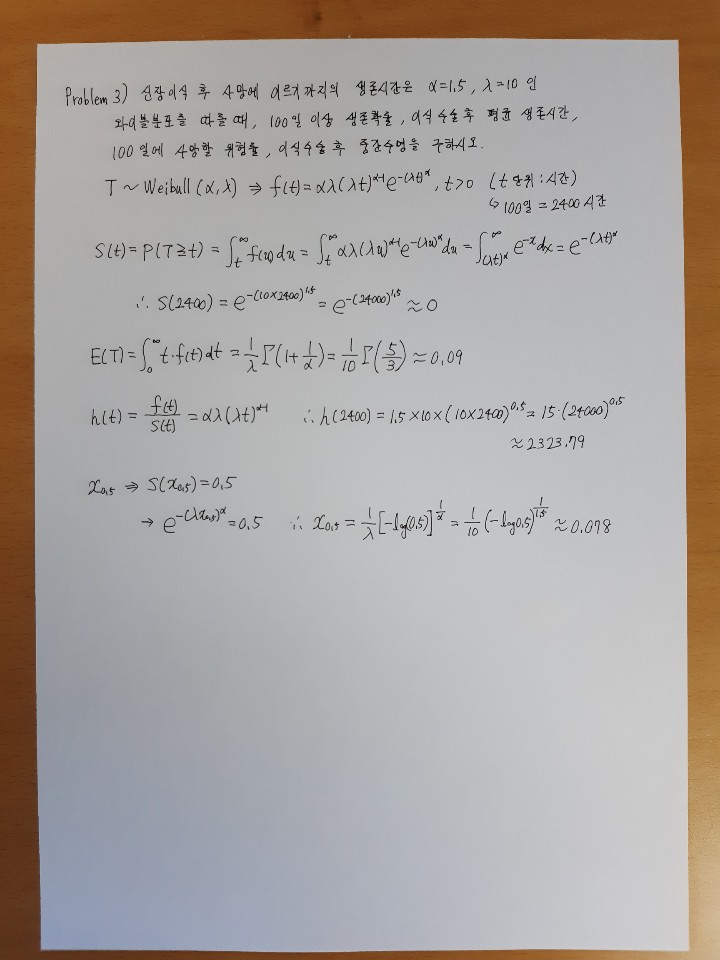 Problem 3) 신장이식 후 사망에 이르기까지의 생존시간은 α=1.5, λ=10 인
와이블분포를 따를 때, 100일 이상 생존확률, 이식수술 후 평균 생존시간,
100일에 사망할 위험률, 이식수술 후 중간수명을 구하시오.
T ~ Weibull (α, λ) ⇒ f(t) = αλ(λt)^{α-1}e^{-(λt)^α}, t>0 (t 단위 : 시간)
↳ 100일 = 2400 시간
S(t) = P(T≥t) = ∫_t^∞ f(u)du = ∫_t^∞ αλ(λu)^{α-1}e^{-(λu)^α}du = ∫_{(λt)^α}^∞ e^{-x}dx = e^{-(λt)^α}
∴ S(2400) = e^{-(10×2400)^{1.5}} = e^{-(24000)^{1.5}} ≈ 0
E(T) = ∫_0^∞ t·f(t)dt = \frac{1}{λ}Γ(1+\frac{1}{α}) = \frac{1}{10}Γ(\frac{5}{3}) ≈ 0.09
h(t) = \frac{f(t)}{S(t)} = αλ(λt)^{α-1} ∴ h(2400) = 1.5×10×(10×2400)^{0.5} = 15·(24000)^{0.5}
≈ 2323.79
x_{0.5} ⇒ S(x_{0.5}) = 0.5
→ e^{-(λx_{0.5})^α} = 0.5 ∴ x_{0.5} = \frac{1}{λ}[-log(0.5)]^{\frac{1}{α}} = \frac{1}{10}(-log0.5)^{\frac{1}{1.5}} ≈ 0.078